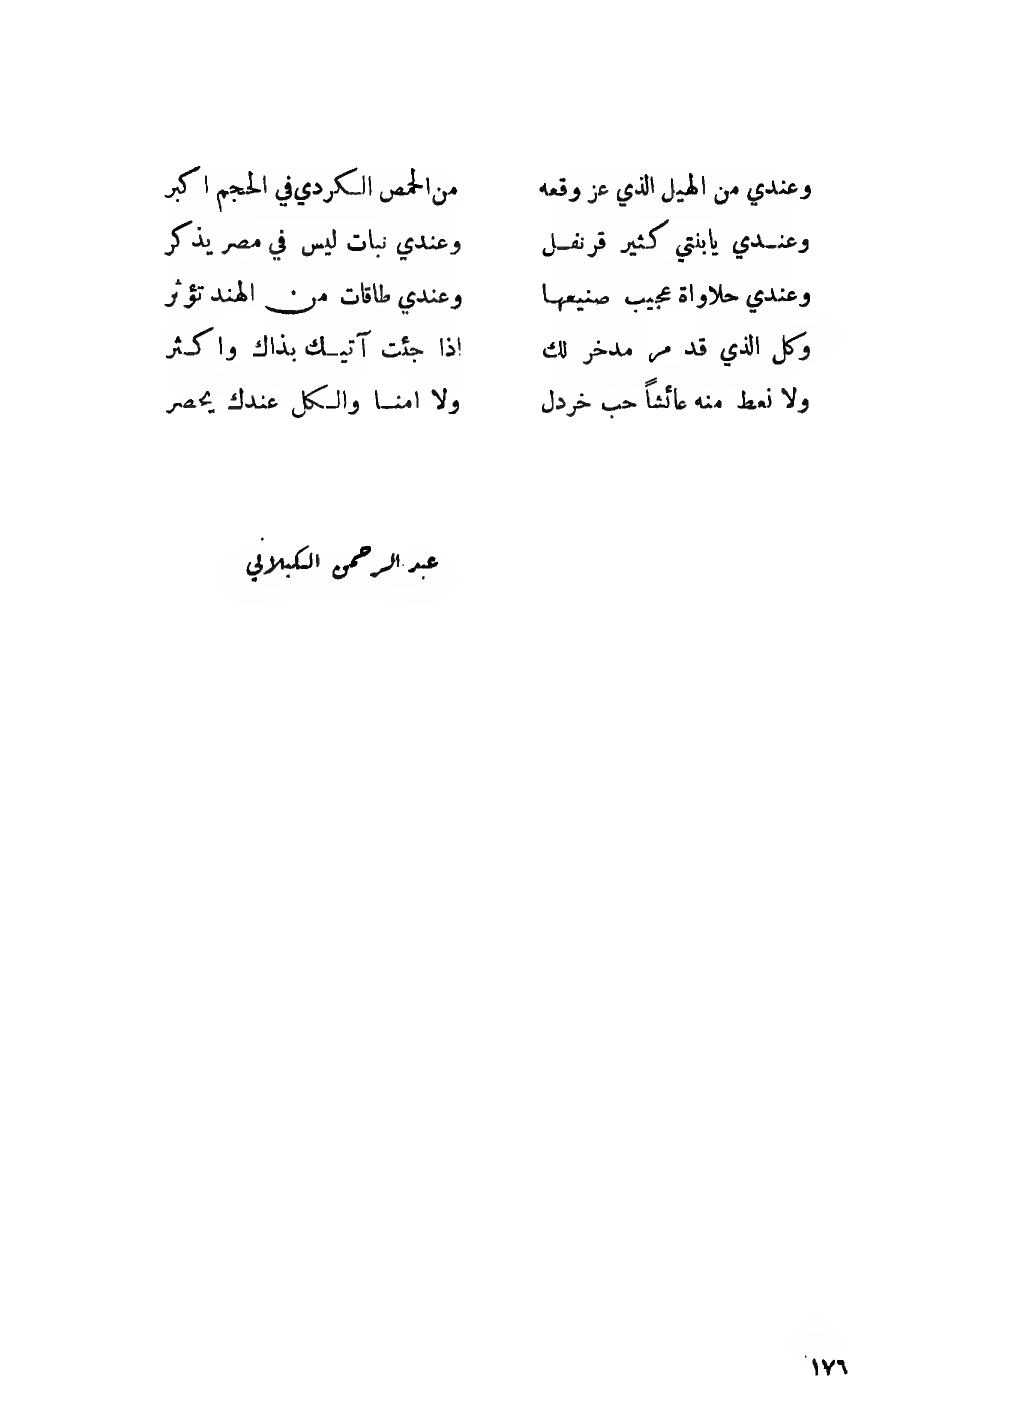 وعندي من الهيل الذي عز وقعه من الحمص الكردي في الحجم اكبر
وعندي يابنتي كثير قرنفل وعندي نبات ليس في مصر يذكر
وعندي حلاواة عجيب صنيعها وعندي طاقات من الهند تؤثر
وكل الذي قد مر مدخر لك اذا جئت آتيك بذاك واكثر
ولا نعط منه عائشاً حب خردل ولا امنا والكل عندك يحصر
عبد الرحمن الكيلاني
١٧٦